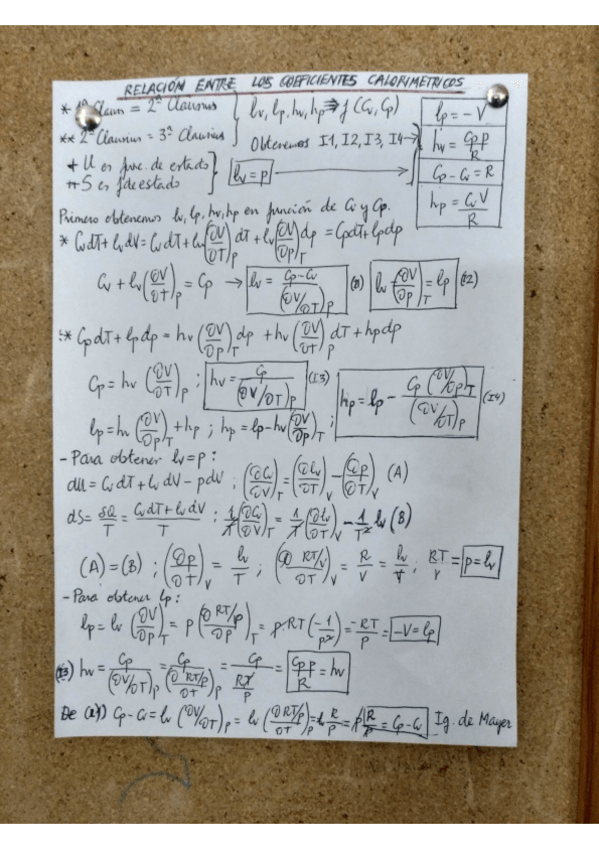 RELACIÓN ENTRE LOS COEFICIENTES CALORIMETRICOS
* 1ª Claus = 2ª Clausius } lv, lp, hv, hp ⇒ f (Cv, Cp)
** 2ª Clausius = 3ª Clausius } Obtenemos I1, I2, I3, I4 →
lp = -V
hv = Cp p / R
Cp - Cv = R
hp = Cv V / R
+ U es func. de estado
++ S es f de estado } lv = p →
Primero obtenemos lv, lp, hv, hp en función de Cv y Cp.
* CvdT + lvdV = CvdT + lv(∂V/∂T)p dT + lv(∂V/∂p)T dp = CpdT + lpdp
Cv + lv(∂V/∂T)p = Cp → lv = (Cp - Cv)/(∂V/∂T)p (I1) lv(∂V/∂p)T = lp (I2)
** CpdT + lpdp = hv(∂V/∂p)T dp + hv(∂V/∂T)p dT + hpdp
Cp = hv(∂V/∂T)p ; hv = Cp/(∂V/∂T)p (I3) hp = lp - Cp(∂V/∂p)T/(∂V/∂T)p (I4)
lp = hv(∂V/∂p)T + hp ; hp = lp - hv(∂V/∂p)T ;
- Para obtener lv = p :
dU = CvdT + lvdV - pdV ; (∂Cv/∂V)T = (∂lv/∂T)V - (∂p/∂T)V (A)
dS = δQ/T = (CvdT + lvdV)/T ; 1/T(∂Cv/∂V)T = 1/T(∂lv/∂T)V - 1/T² lv (B)
(A) = (B) ; (∂p/∂T)V = lv/T ; (∂ RT/V / ∂T)V = R/V = lv/T ; RT/V = p = lv
- Para obtener lp :
lp = lv(∂V/∂p)T = p(∂ RT/p / ∂p)T = p·RT(-1/p²) = -RT/p = -V = lp
(I3) hv = Cp/(∂V/∂T)p = Cp/(∂ RT/p / ∂T)p = Cp/(R/p) = Cp p/R = hv
De (I1) Cp - Cv = lv(∂V/∂T)p = lv(∂ RT/p / ∂T)p = lv R/p = p R/p = Cp - Cv Ig. de Mayer